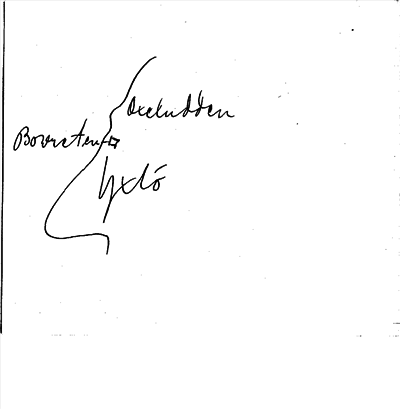 Oxeludden
Boersten
Yxlö